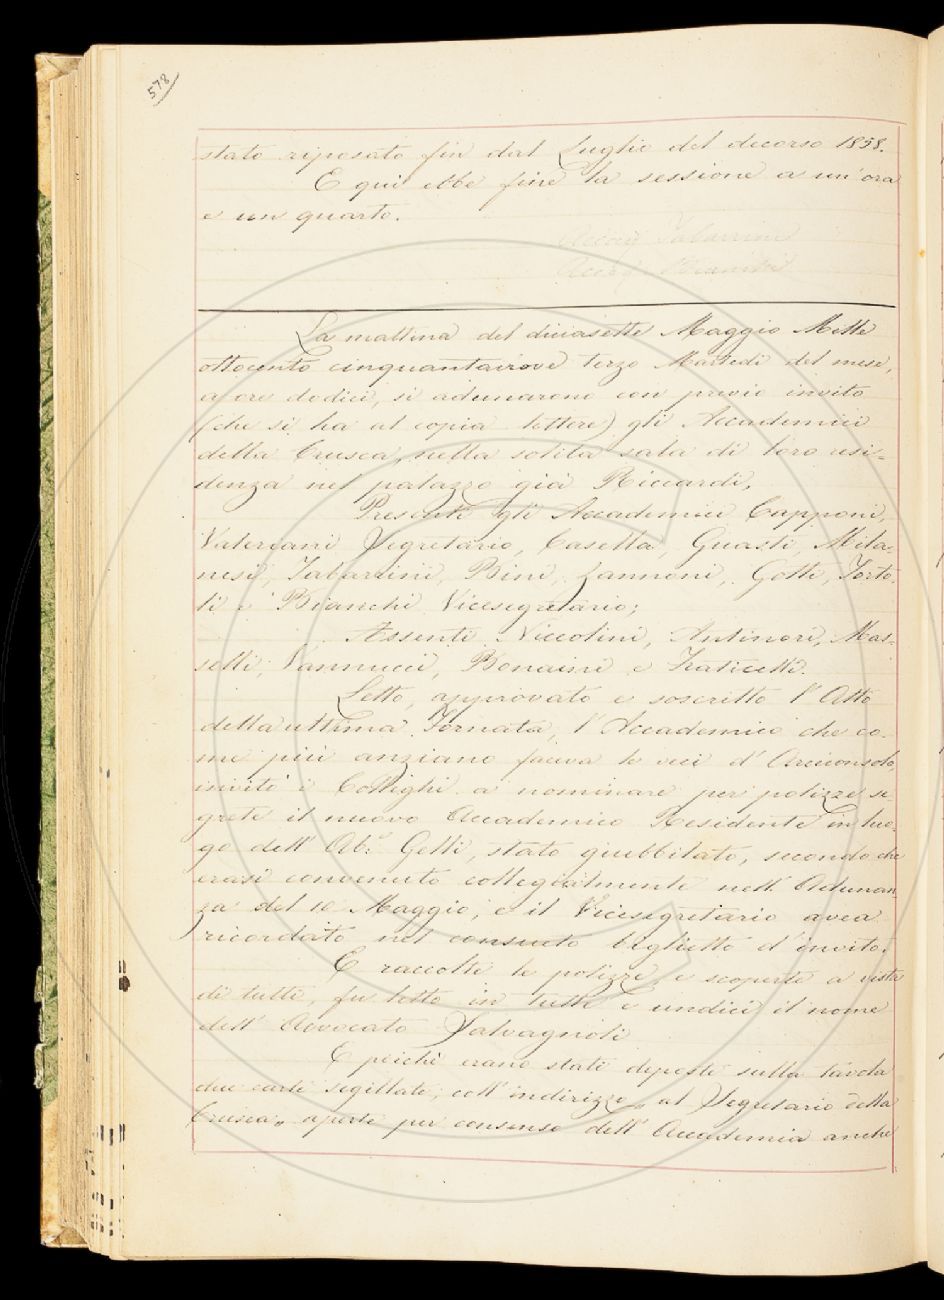 578
stato riposato fin dal Luglio del decorso 1858.
E qui ebbe fine la sessione a un'ora
e un quarto.
Accad. Tabarrini
Accad. Bianchi
La mattina del diciasette Maggio Mille
ottocento cinquantanove terzo Martedì del mese,
a ore dodici, si adunarono con previo invito
(che si ha al copia lettere) gli Accademici
della Crusca, nella solita sala di loro resi=
denza nel palazzo già Riccardi,
Presenti gli Accademici Capponi,
Valeriani Segretario, Casella, Guasti, Mila=
nesi, Tabarrini, Bini, Zannoni, Gotti, Torto=
li e Bianchi Vicesegretario;
Assenti Niccolini, Antinori, Mas=
selli, Vannucci, Bonaini e Fraticelli.
Letto, approvato e soscritto l'Atto
della ultima Tornata, l'Accademico che co=
me più anziano faceva le veci d'Arciconsolo,
invitò i Colleghi a nominare per polizze se=
grete il nuovo Accademico Residente in luo=
go dell'Ab.e Gelli, stato giubbilato, secondo che
erasi convenuto collegialmente nell'Adunan=
za del 10 Maggio, e il Vicesegretario avea
ricordato nel consueto biglietto d'invito.
E raccolte le polizze, e scoperte a vista
di tutti, fu letto in tutte e undici il nome
dell'Avvocato Salvagnoli
E poichè erano stati deposte sulla tavola
due carte sigillate, coll'indirizzo „ al Segretario della
Crusca„ aperte per consenso dell'Accademia anche